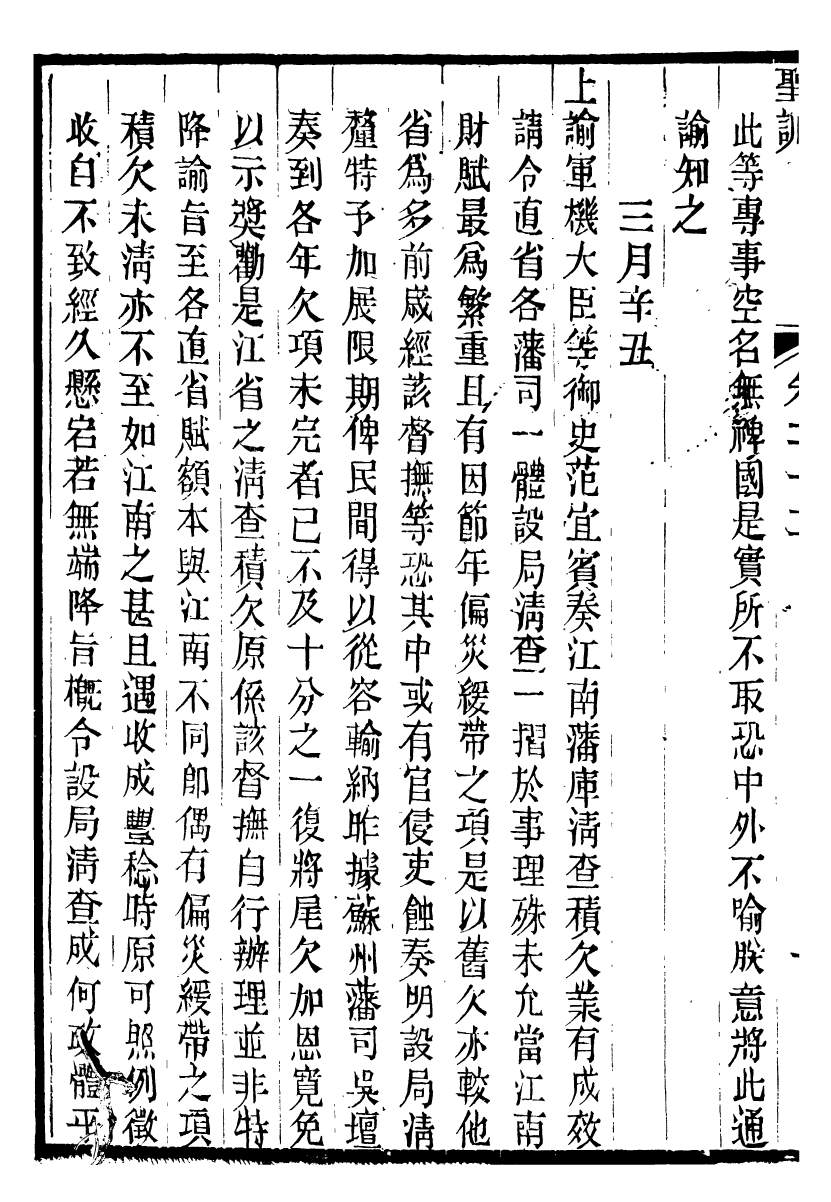 聖訓　卷二十二
此等專事空名無裨國是實所不取恐中外不喻朕意將此通
諭知之
三月辛丑
上諭軍機大臣等御史范宜賓奏江南藩庫淸查積欠業有成效
請令直省各藩司一體設局淸查一摺於事理殊未允當江南
財賦最爲繁重且有因節年偏災緩帶之項是以舊欠亦較他
省爲多前歲經該督撫等恐其中或有官侵吏蝕奏明設局淸
釐特予加展限期俾民間得以從容輸納昨據蘇州藩司吳壇
奏到各年欠項未完者已不及十分之一復將尾欠加恩寬免
以示獎勸是江省之淸查積欠原係該督撫自行辦理並非特
降諭旨至各直省賦額本與江南不同卽偶有偏災緩帶之項
積欠未淸亦不至如江南之甚且遇收成豐稔時原可照例徵
收自不致經久懸宕若無端降旨槪令設局淸查成何政體平